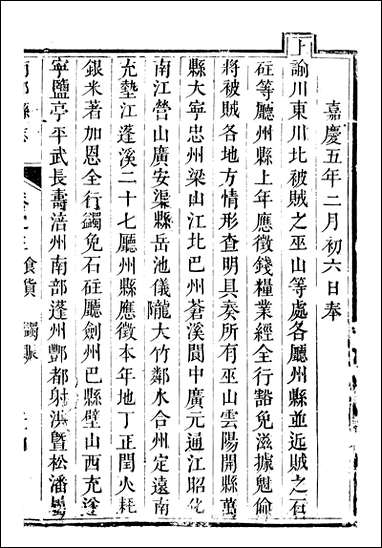 嘉慶五年二月初六日奉
上諭川東川北被賊之巫山等處各廳州縣並近賊之石
砫等廳州縣上年應徵錢糧業經全行豁免滋據魁倫
將被賊各地方情形查明具奏所有巫山雲陽開縣萬
縣大寧忠州梁山江北巴州蒼溪閬中廣元通江昭化
南江營山廣安渠縣岳池儀隴大竹鄰水合州定遠南
充墊江蓬溪二十七廳州縣應徵本年地丁正閏火耗
銀米著加恩全行蠲免石砫廳劍州巴縣璧山西充遂
寧鹽亭平武長壽涪州南部蓬州酆都射洪暨松潘
縣志
卷之三食貨
蠲賑